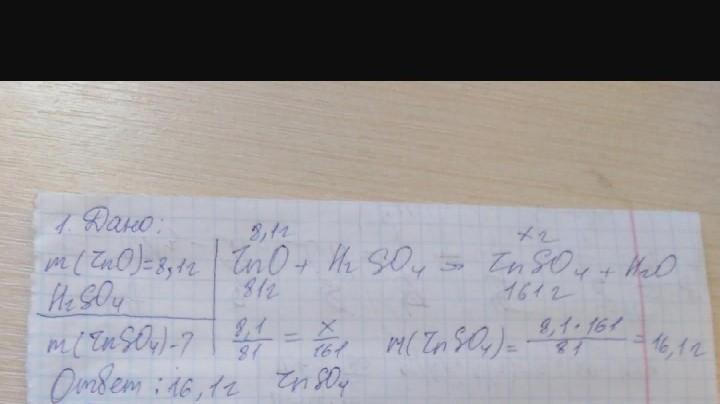 1. Дано:
m(ZnO)=8,1г
H₂SO₄
m(ZnSO₄)-?
8,1г хг
ZnO + H₂SO₄ = ZnSO₄ + H₂O
81г 161г
8,1/81 = х/161 m(ZnSO₄) = 8,1·161/81 = 16,1г
Ответ: 16,1г ZnSO₄